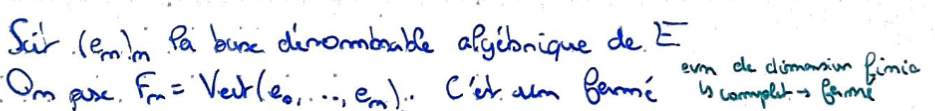 Soit (e_n)_n la base dénombrable algébrique de E
On pose F_n = Vect(e_0, ..., e_n). C'est un fermé
evn de dimension finie
↳ complet → fermé